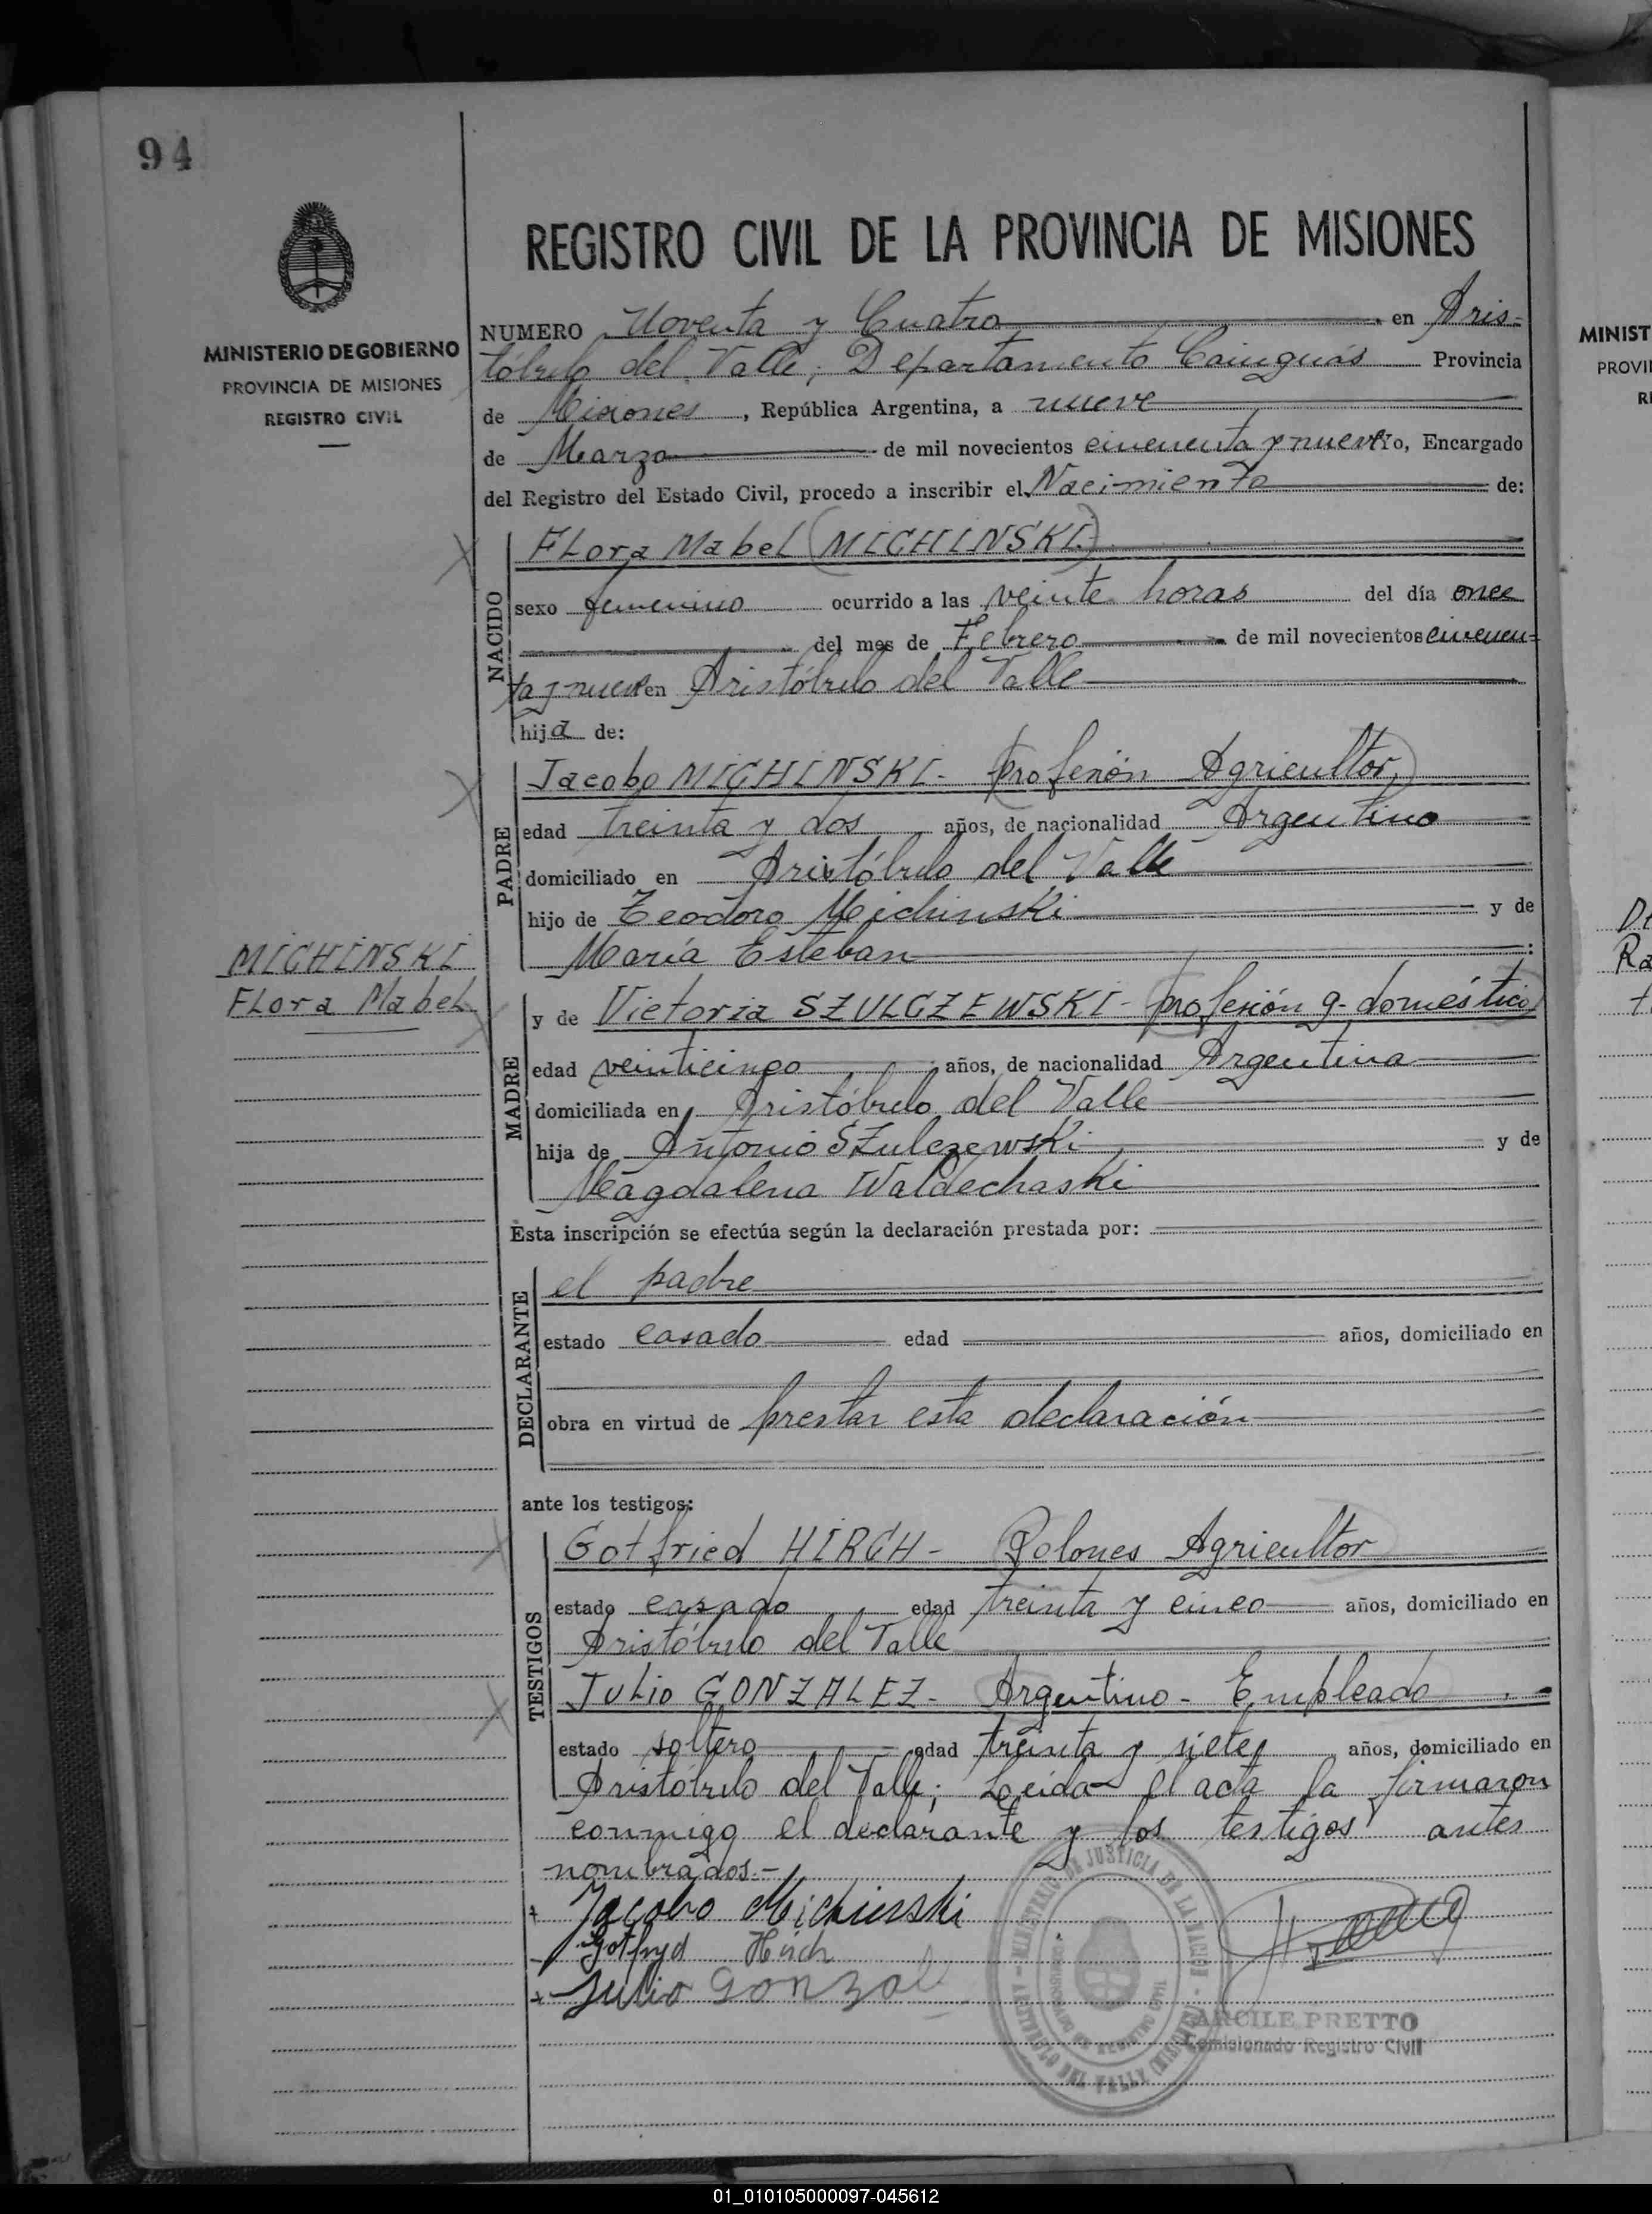 94
MINISTERIO DE GOBIERNO
PROVINCIA DE MISIONES
REGISTRO CIVIL
REGISTRO CIVIL DE LA PROVINCIA DE MISIONES
NUMERO Noventa y Cuatro en Aris-
tóbulo del Valle; Departamento Cainguás Provincia
de Misiones, República Argentina, a nueve
de Marzo de mil novecientos cincuenta y nueve Yo, Encargado
del Registro del Estado Civil, procedo a inscribir el Nacimiento de:
NACIDO
Flora Mabel (MICHINSKI)
sexo femenino ocurrido a las veinte horas del día once
del mes de Febrero de mil novecientos cincuen-
ta y nueve en Aristóbulo del Valle
hija de:
PADRE
Jacobo MICHINSKI - profesión Agricultor,
edad treinta y dos años, de nacionalidad Argentino
domiciliado en Aristóbulo del Valle
hijo de Teodoro Michinski y de
María Esteban :
MICHINSKI
Flora Mabel
MADRE
y de Victoria SZULCZEWSKI - profesión q. doméstico
edad veinticinco años, de nacionalidad Argentina
domiciliada en Aristóbulo del Valle
hija de Antonio Szulczewski y de
Magdalena Waldechaski
Esta inscripción se efectúa según la declaración prestada por:
DECLARANTE
el padre
estado casado edad años, domiciliado en
obra en virtud de prestar esta declaración
ante los testigos:
TESTIGOS
Gotfried HIRCH - Polones Agricultor
estado casado edad treinta y cinco años, domiciliado en
Aristóbulo del Valle
Julio GONZALEZ - Argentino - Empleado
estado soltero edad treinta y siete años, domiciliado en
Aristóbulo del Valle; Leida el acta la firmaron
conmigo el declarante y los testigos antes
nombrados.-
Jacobo Michinski
Gotfryd Hirch
Julio Gonzal
MINISTERIO DE JUSTICIA DE LA NACION - ARISTOBULO DEL VALLE (MISIONES)
ARCILE PRETTO
Comisionado Registro Civil
MINIST
PROVI
R
01_010105000097-045612